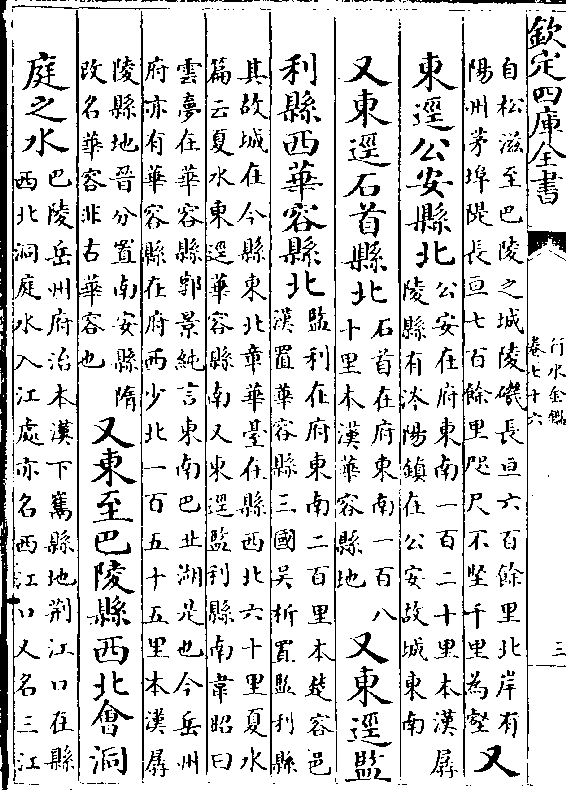 欽定四庫全書
行水金鑑
卷七十六
三
自松滋至巴陵之城陵磯長亘六百餘里北岸有
陽州茅埠隄長亘七百餘里咫尺不堅千里為壑
又
東逕公安縣北
公安在府東南一百二十里本漢孱
陵縣有涔陽鎮在公安故城東南
又東逕石首縣北
石首在府東南一百八
十里本漢華容縣地
又東逕監
利縣西華容縣北
監利在府東南二百里本楚容邑
漢置華容縣三國吳析置監利縣
其故城在今縣東北章華臺在縣西北六十里夏水
篇云夏水東逕華容縣南又東逕監利縣南韋昭曰
雲夢在華容縣郭景純言東南巴丘湖是也今岳州
府亦有華容縣在府西少北一百五十五里本漢孱
陵縣地晉分置南安縣隋
改名華容非古華容也
又東至巴陵縣西北會洞
庭之水
巴陵岳州府治本漢下雋縣地荆江口在縣
西北洞庭水入江處亦名西江口又名三江